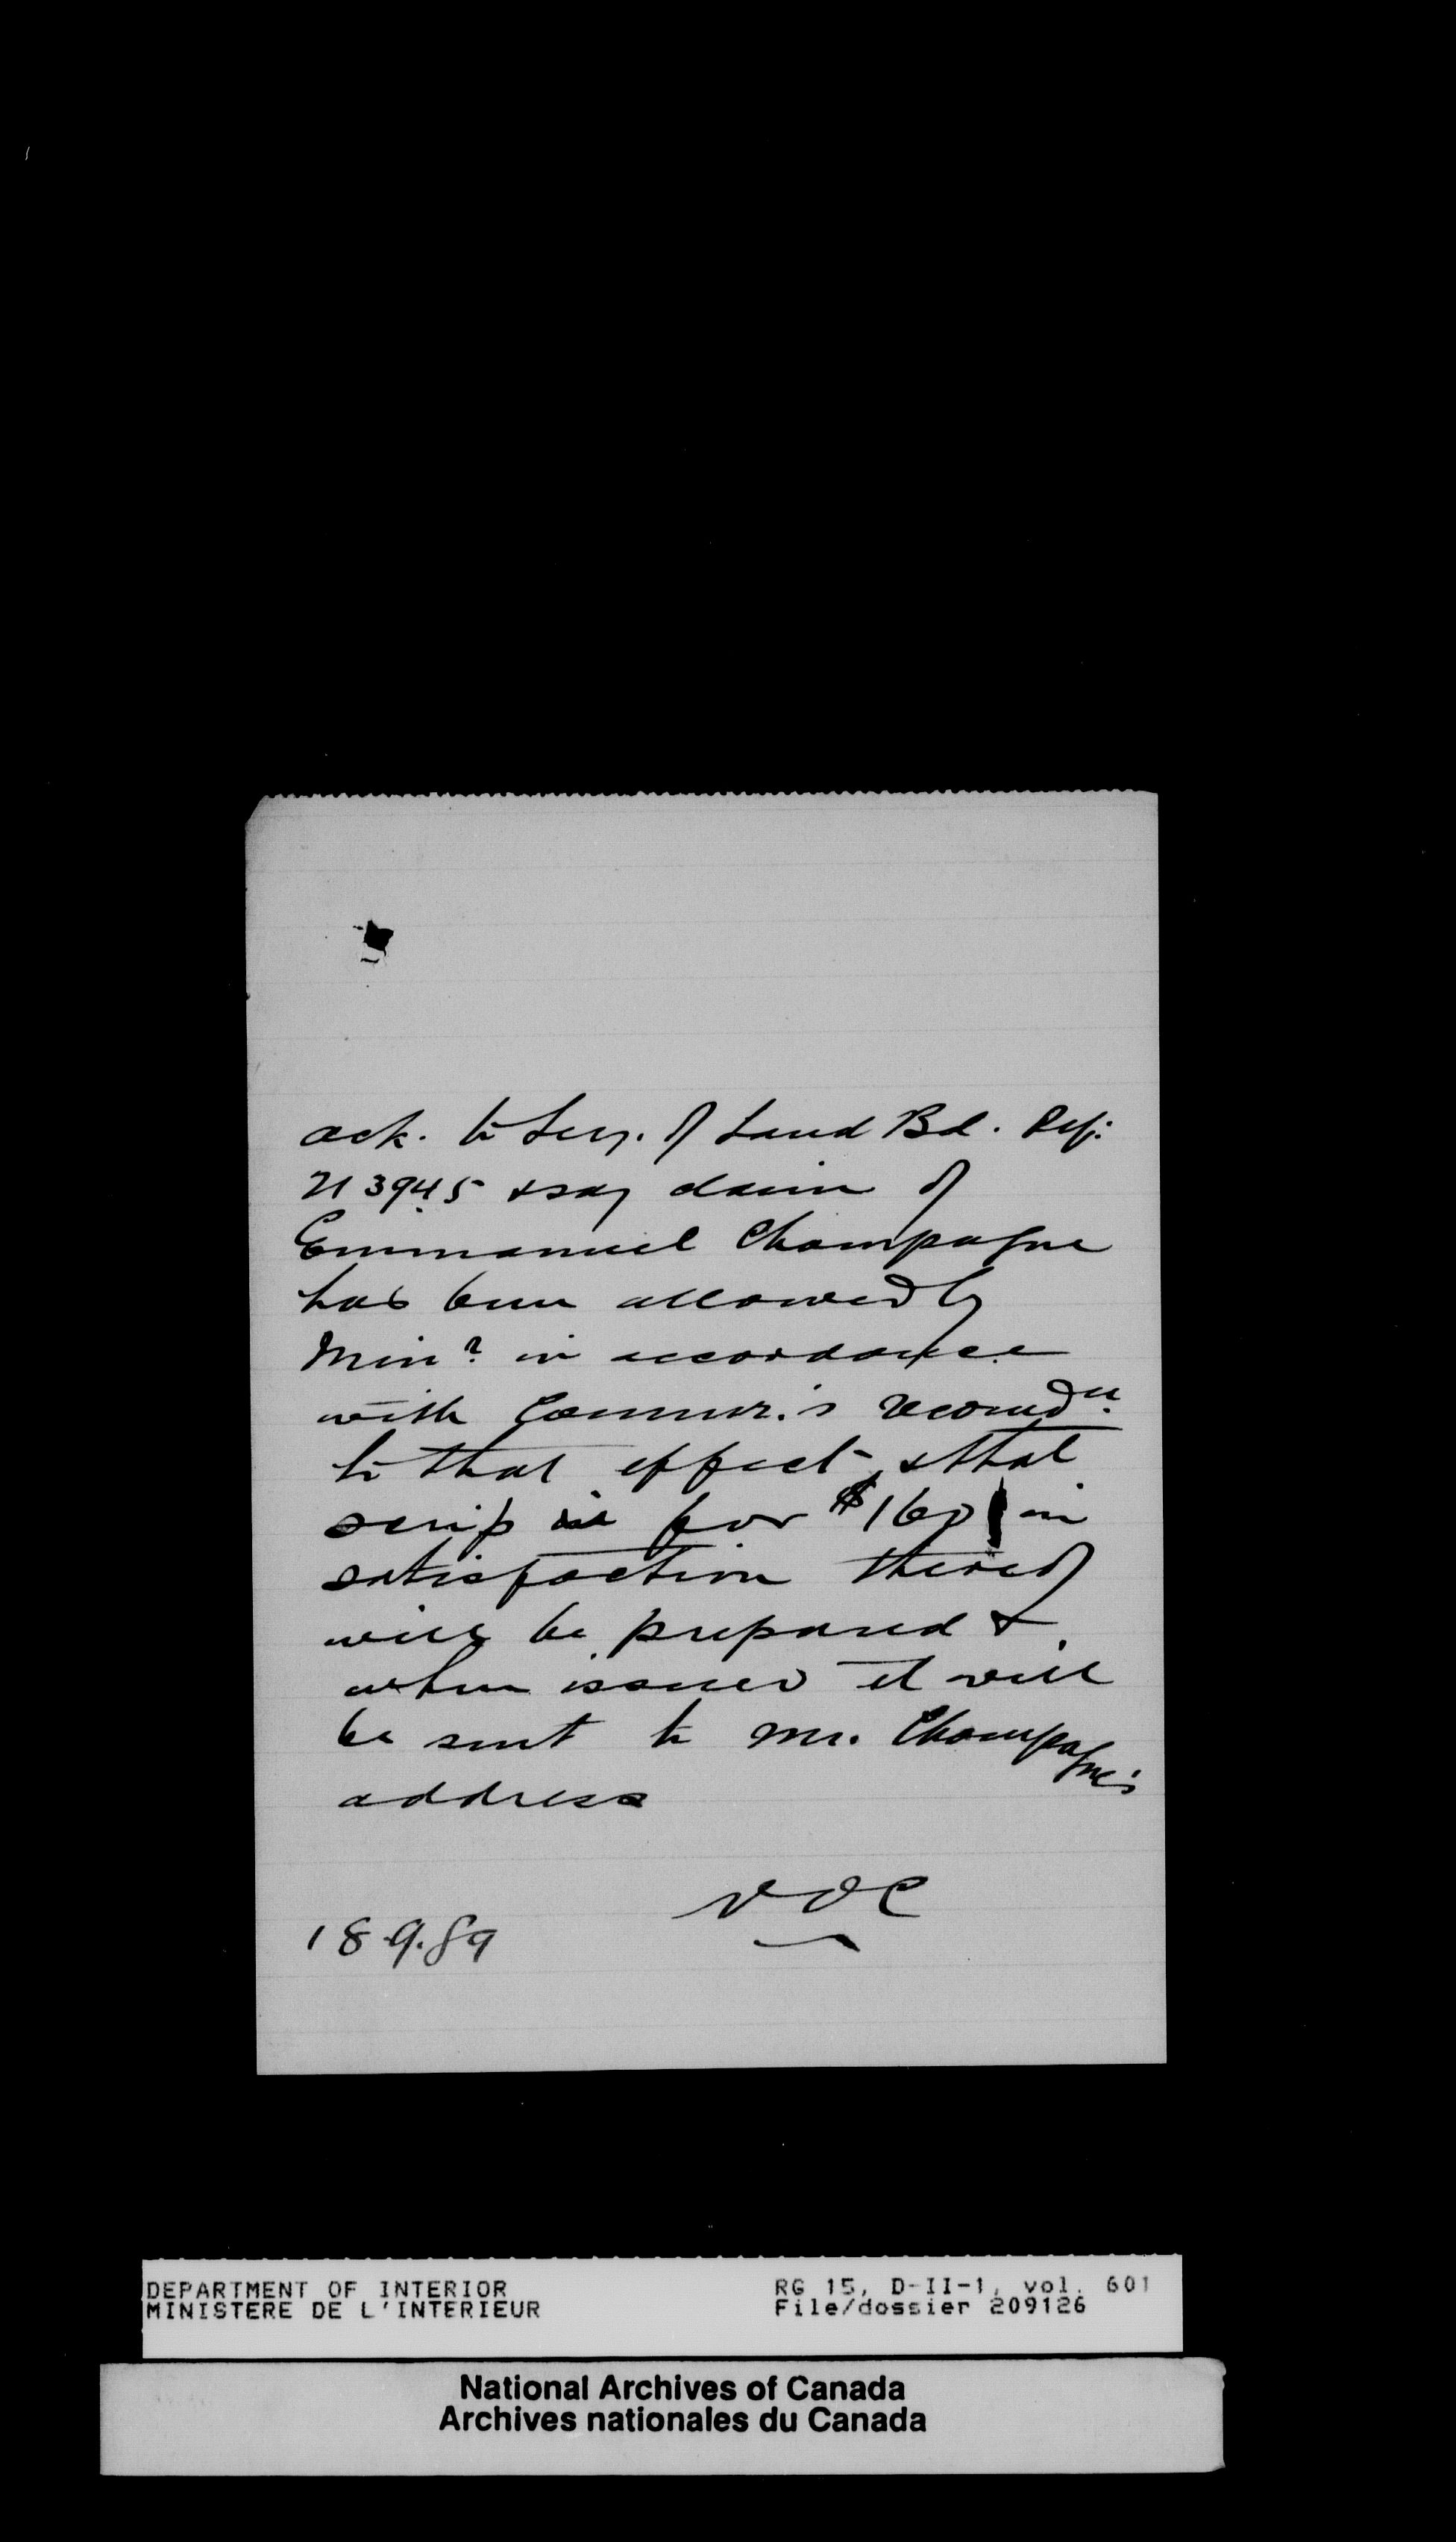 ack. to Secy. of Land Bd. Ref:
213945 & say claim of
Emmanuel Champagne
has been allowed by
Minr. in accordance
with Commr.'s recomdn.
to that effect, & that
scrip for $160 in
satisfaction thereof
will be prepared &
when issued it will
be sent to Mr. Champagne's
address
18.9.89
DEPARTMENT OF INTERIOR
MINISTERE DE L'INTERIEUR
RG 15, D-II-1, vol. 601
File/dossier 209126
National Archives of Canada
Archives nationales du Canada